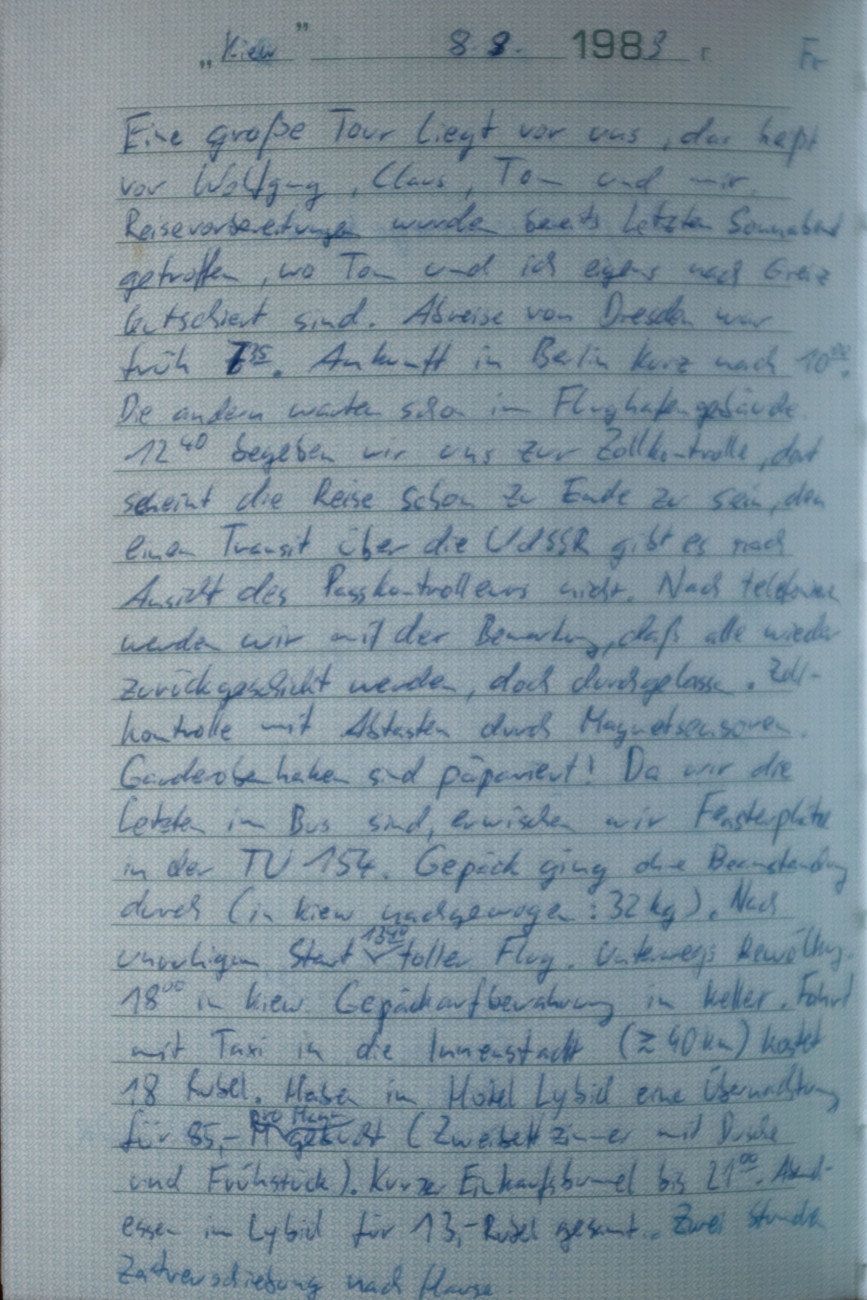 „Kiew" 8.8. 1983 r Fr
Eine große Tour liegt vor uns, das heßt
vor Wolfgang, Claus, Tom und mir.
Reisevorbereitungen wurden bereits letzten Sonnabend
getroffen, wo Tom und ich eigens nach Greiz
kutschiert sind. Abreise von Dresden war
früh 7³⁵. Ankunft in Berlin kurz nach 10⁰⁰.
Die andern warten schon im Flughafengebäude.
12⁴⁰ begeben wir uns zur Zollkontrolle, dort
scheint die Reise schon zu Ende zu sein, den
einen Transit über die UdSSR gibt es nach
Ansicht des Passkontrolleurs nicht. Nach telefonieren
werden wir mit der Bemerkung, daß alle wieder
zurückgeschickt werden, doch durchgelassen. Zoll-
kontrolle mit Abtasten durch Magnetsensoren.
Garderobenhaken sind präpariert! Da wir die
letzten im Bus sind, erwischen wir Fensterplätze
in der TU 154. Gepäck ging ohne Beanstandung
durch (in Kiew nachgewogen: 32 kg). Nach
unruhigem Start 13⁴⁰ toller Flug. Unterwegs Bewölkung.
18⁰⁰ in Kiew. Gepäckaufbewahrung im Keller. Fahrt
mit Taxi in die Innenstadt (≈ 40 km) kostet
18 Rubel. Haben im Hotel Lybid eine Übernachtung
für 85,- M pro Mann (Zweibettzimmer mit Dusche
und Frühstück). Kurzer Einkaufsbummel bis 21⁰⁰. Abend-
essen im Lybid für 13,- Rubel gesamt. Zwei Stunden
Zeitverschiebung nach Hause.